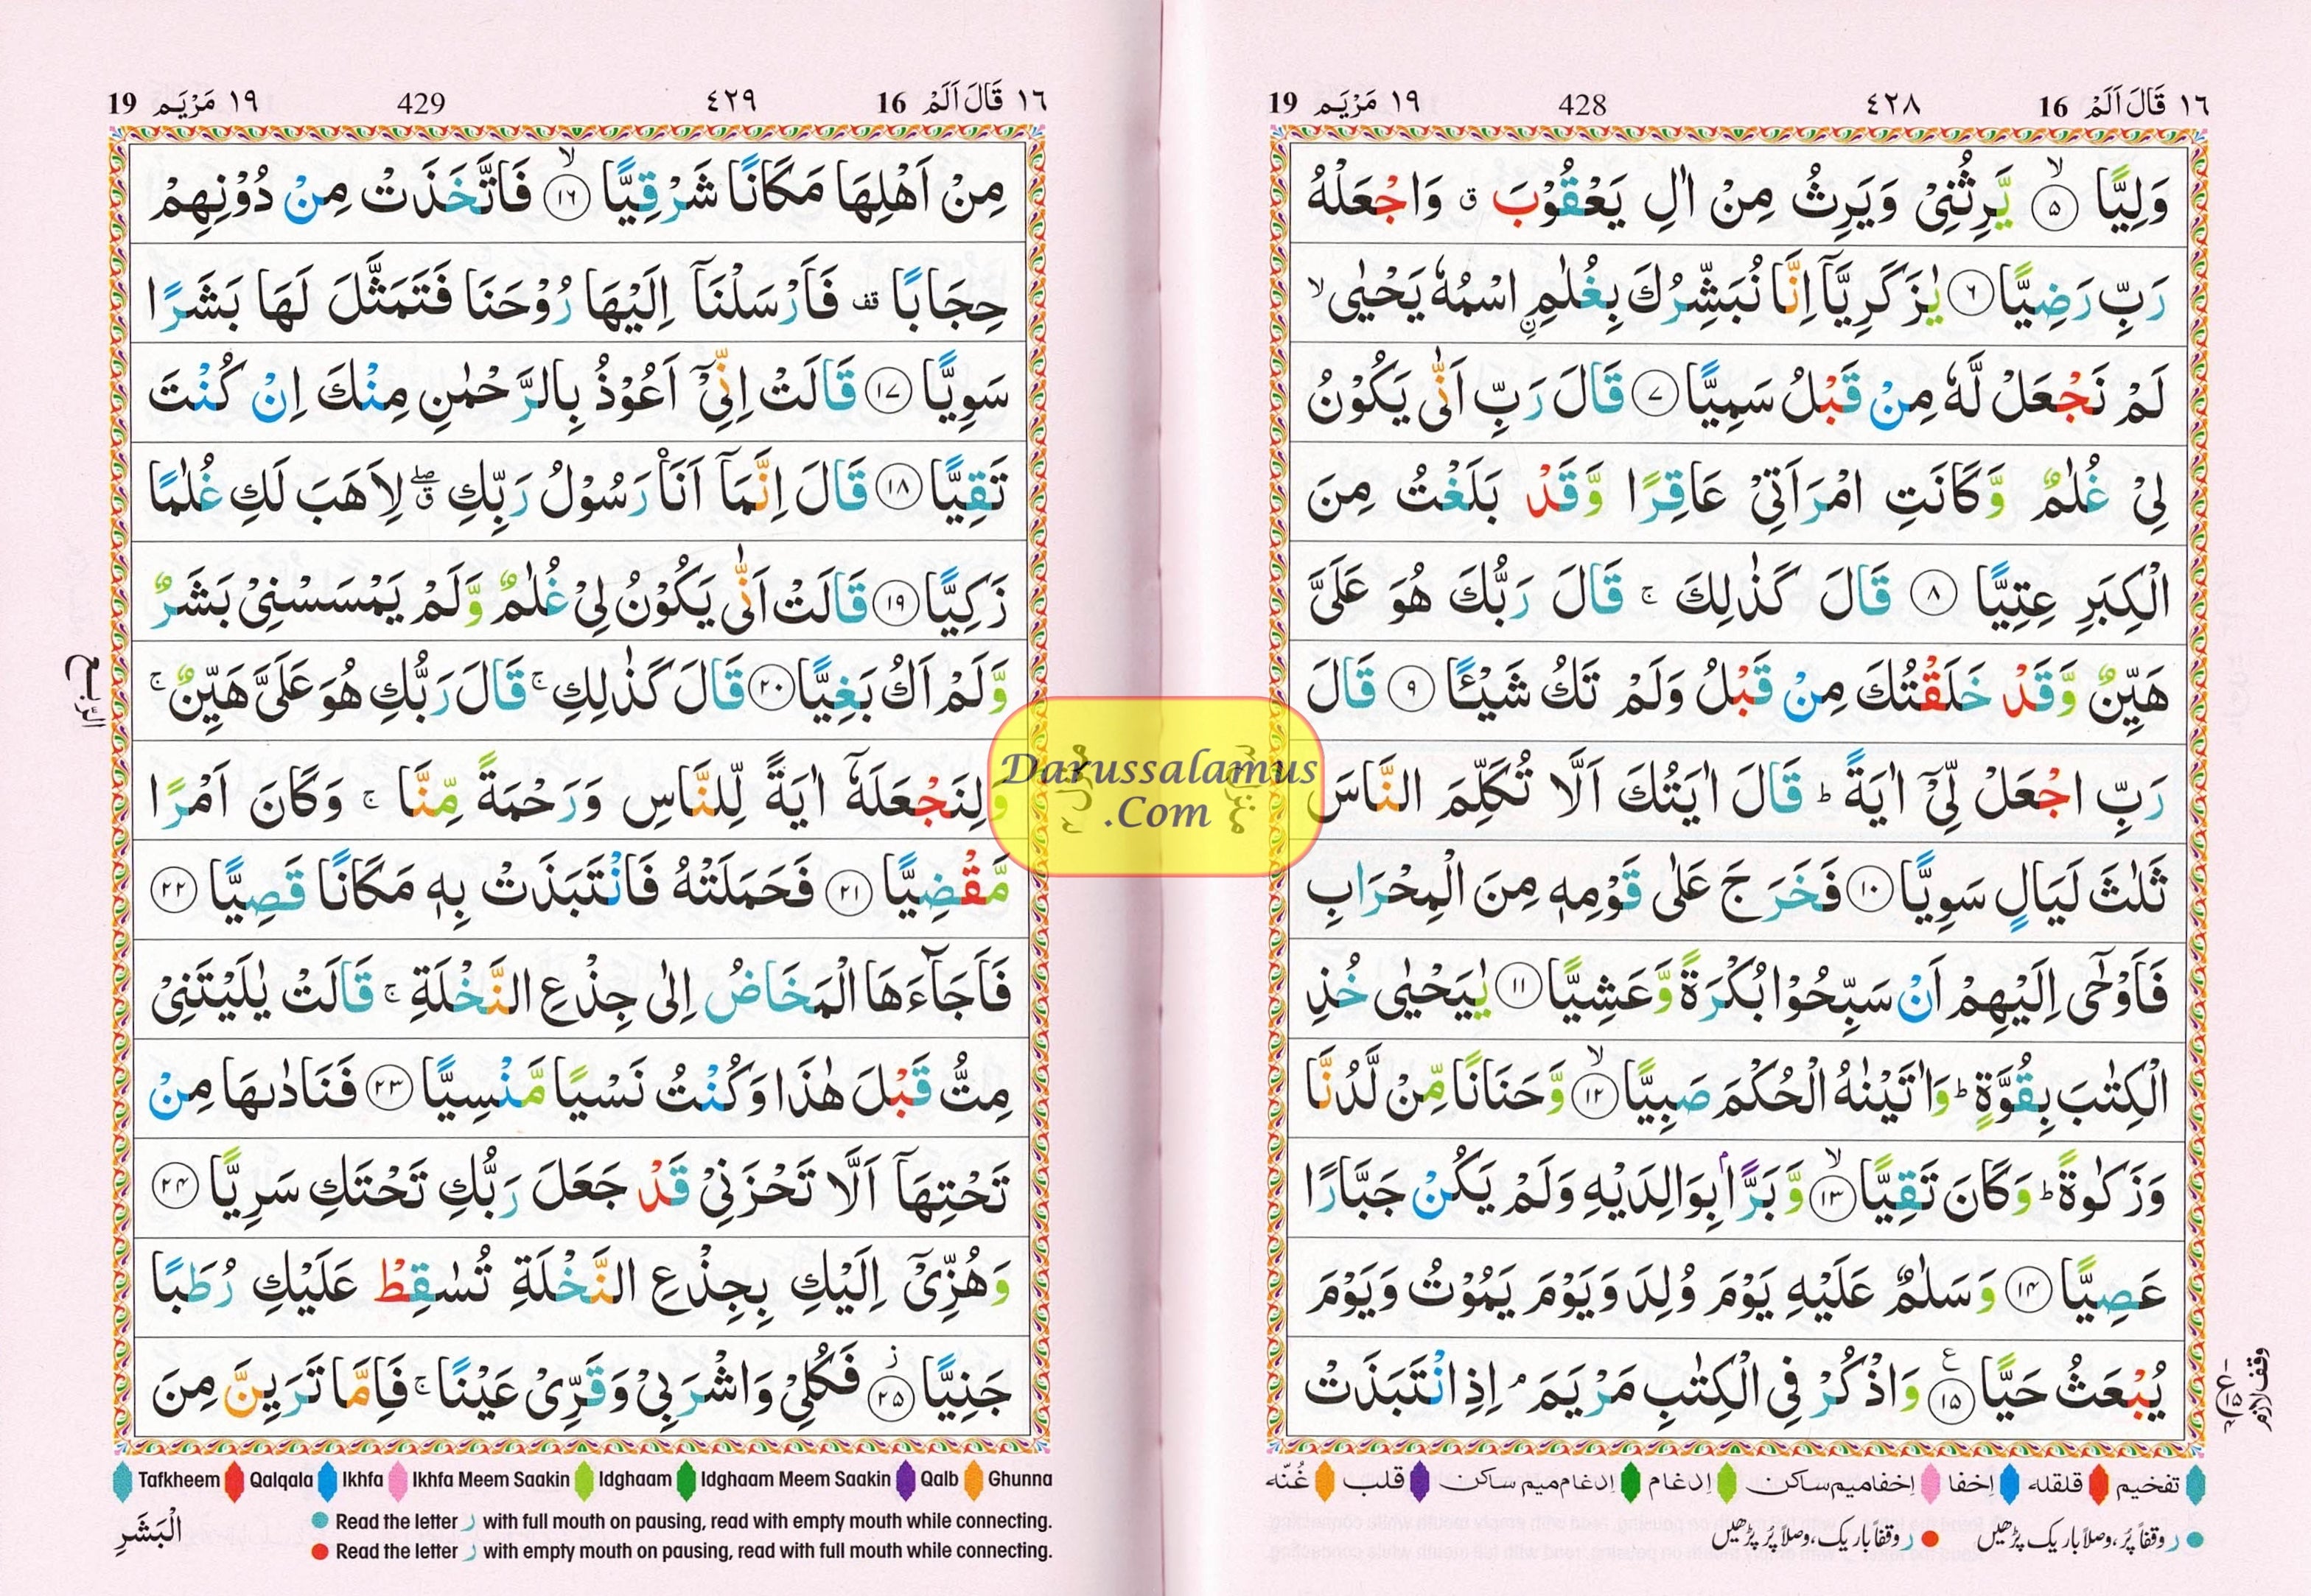 ١٦ قَالَ اَلَمْ 16 ٤٢٨ 428 ١٩ مَرْيَم 19
وَلِيًّا ۙ‏﴿۵﴾ يَّرِثُنِىْ وَيَرِثُ مِنْ اٰلِ يَعْقُوْبَ ۖق وَاجْعَلْهُ
رَبِّ رَضِيًّا ﴿۶﴾ يٰزَكَرِيَّآ اِنَّا نُبَشِّرُكَ بِغُلٰمِ ۨاسْمُهٗ يَحْيٰى ۙ
لَمْ نَجْعَلْ لَّهٗ مِنْ قَبْلُ سَمِيًّا ﴿۷﴾ قَالَ رَبِّ اَنّٰى يَكُوْنُ
لِىْ غُلٰمٌ وَّكَانَتِ امْرَاَتِىْ عَاقِرًا وَّقَدْ بَلَغْتُ مِنَ
الْكِبَرِ عِتِيًّا ﴿۸﴾ قَالَ كَذٰلِكَ ۚ قَالَ رَبُّكَ هُوَ عَلَىَّ
هَيِّنٌ وَّقَدْ خَلَقْتُكَ مِنْ قَبْلُ وَلَمْ تَكُ شَيْـًٔا ﴿۹﴾ قَالَ
رَبِّ اجْعَلْ لِّىْٓ اٰيَةً ؕ قَالَ اٰيَتُكَ اَلَّا تُكَلِّمَ النَّاسَ
ثَلٰثَ لَيَالٍ سَوِيًّا ﴿۱۰﴾ فَخَرَجَ عَلٰى قَوْمِهٖ مِنَ الْمِحْرَابِ
فَاَوْحٰٓى اِلَيْهِمْ اَنْ سَبِّحُوْا بُكْرَةً وَّعَشِيًّا ﴿۱۱﴾ يٰيَحْيٰى خُذِ
الْكِتٰبَ بِقُوَّةٍ ؕ وَاٰتَيْنٰهُ الْحُكْمَ صَبِيًّا ۙ‏﴿۱۲﴾ وَّحَنَانًا مِّنْ لَّدُنَّا
وَزَكٰوةً ؕ وَكَانَ تَقِيًّا ۙ‏﴿۱۳﴾ وَّبَرًّۢا بِوَالِدَيْهِ وَلَمْ يَكُنْ جَبَّارًا
عَصِيًّا ﴿۱۴﴾ وَسَلٰمٌ عَلَيْهِ يَوْمَ وُلِدَ وَيَوْمَ يَمُوْتُ وَيَوْمَ
يُبْعَثُ حَيًّا ﴿۱۵﴾ ع وَاذْكُرْ فِى الْكِتٰبِ مَرْيَمَ ۘ اِذِ انْتَبَذَتْ
وقف لازم
تفخیم قلقله اِخفا اِخفامیم ساکن اِدغام اِدغام میم ساکن قلب غُنّه
ر وقفاً پُر، وصلاً باریک پڑھیں ر وقفاً باریک، وصلاً پُر پڑھیں
١٦ قَالَ اَلَمْ 16 ٤٢٩ 429 ١٩ مَرْيَم 19
مِنْ اَهْلِهَا مَكَانًا شَرْقِيًّا ۙ‏﴿۱۶﴾ فَاتَّخَذَتْ مِنْ دُوْنِهِمْ
حِجَابًا قف فَاَرْسَلْنَآ اِلَيْهَا رُوْحَنَا فَتَمَثَّلَ لَهَا بَشَرًا
سَوِيًّا ﴿۱۷﴾ قَالَتْ اِنِّىْٓ اَعُوْذُ بِالرَّحْمٰنِ مِنْكَ اِنْ كُنْتَ
تَقِيًّا ﴿۱۸﴾ قَالَ اِنَّمَآ اَنَا۟ رَسُوْلُ رَبِّكِ ۖق لِاَهَبَ لَكِ غُلٰمًا
زَكِيًّا ﴿۱۹﴾ قَالَتْ اَنّٰى يَكُوْنُ لِىْ غُلٰمٌ وَّلَمْ يَمْسَسْنِىْ بَشَرٌ
وَّلَمْ اَكُ بَغِيًّا ﴿۲۰﴾ قَالَ كَذٰلِكِ ۚ قَالَ رَبُّكِ هُوَ عَلَىَّ هَيِّنٌ ۚ
وَلِنَجْعَلَهٗٓ اٰيَةً لِّلنَّاسِ وَرَحْمَةً مِّنَّا ۚ وَكَانَ اَمْرًا
مَّقْضِيًّا ﴿۲۱﴾ فَحَمَلَتْهُ فَانْتَبَذَتْ بِهٖ مَكَانًا قَصِيًّا ﴿۲۲﴾
فَاَجَآءَهَا الْمَخَاضُ اِلٰى جِذْعِ النَّخْلَةِ ۚ قَالَتْ يٰلَيْتَنِىْ
مِتُّ قَبْلَ هٰذَا وَكُنْتُ نَسْيًا مَّنْسِيًّا ﴿۲۳﴾ فَنَادٰىهَا مِنْ
تَحْتِهَآ اَلَّا تَحْزَنِىْ قَدْ جَعَلَ رَبُّكِ تَحْتَكِ سَرِيًّا ﴿۲۴﴾
وَهُزِّىْٓ اِلَيْكِ بِجِذْعِ النَّخْلَةِ تُسٰقِطْ عَلَيْكِ رُطَبًا
جَنِيًّا ز ﴿۲۵﴾ فَكُلِىْ وَاشْرَبِىْ وَقَرِّىْ عَيْنًا ۚ فَاِمَّا تَرَيِنَّ مِنَ
Tafkheem Qalqala Ikhfa Ikhfa Meem Saakin Idghaam Idghaam Meem Saakin Qalb Ghunna
Read the letter ر with full mouth on pausing, read with empty mouth while connecting.
Read the letter ر with empty mouth on pausing, read with full mouth while connecting.
الْبَشَرِ
Darussalamus
.Com